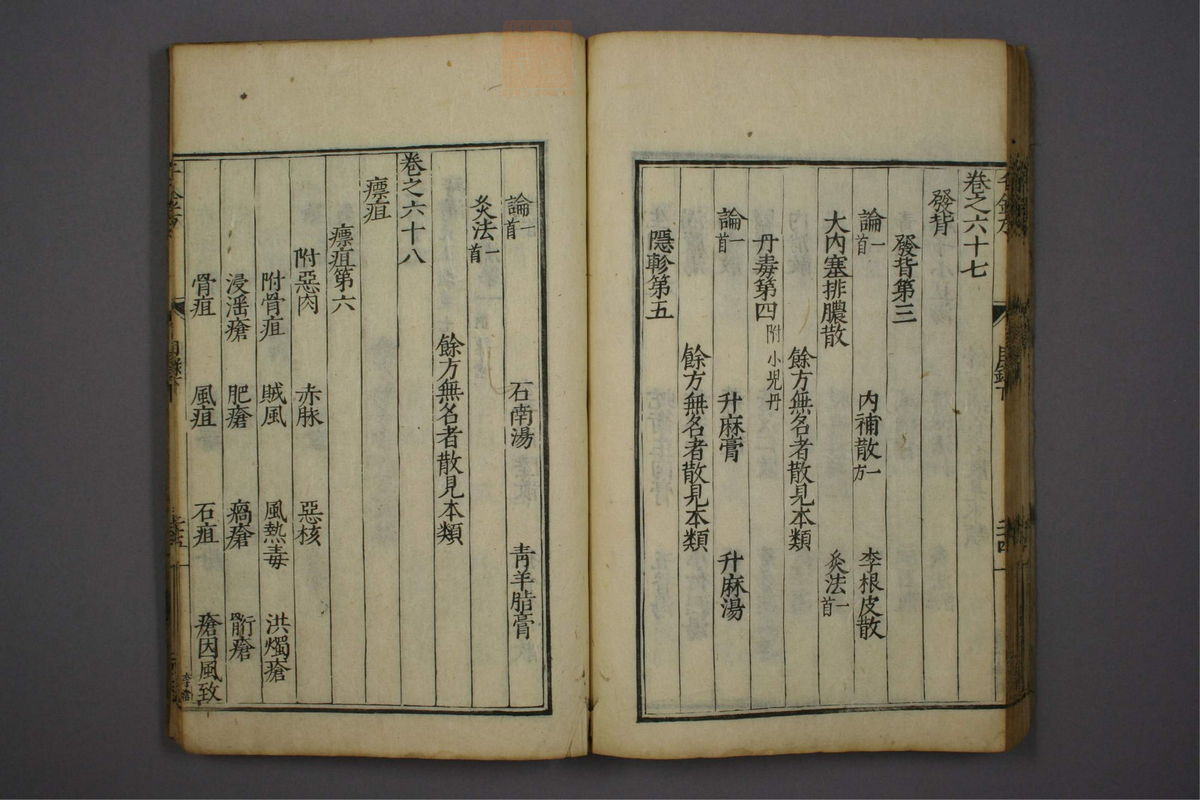 卷之六十七
發背
發背第三
論一首 內補散一方 李根皮散
大內塞排膿散 灸法一首
餘方無名者散見本類
丹毒第四 附小兒丹
論一首 升麻膏 升麻湯
餘方無名者散見本類
隱軫第五
論一首 石南湯 青羊脂膏
灸法一首
餘方無名者散見本類
卷之六十八
瘭疽
瘭疽第六
附惡肉 赤脉 惡核
附骨疽 賊風 風熱毒 洪燭瘡
浸淫瘡 肥瘡 瘑瘡 䯒瘡
骨疽 風疽 石疽 瘡因風致